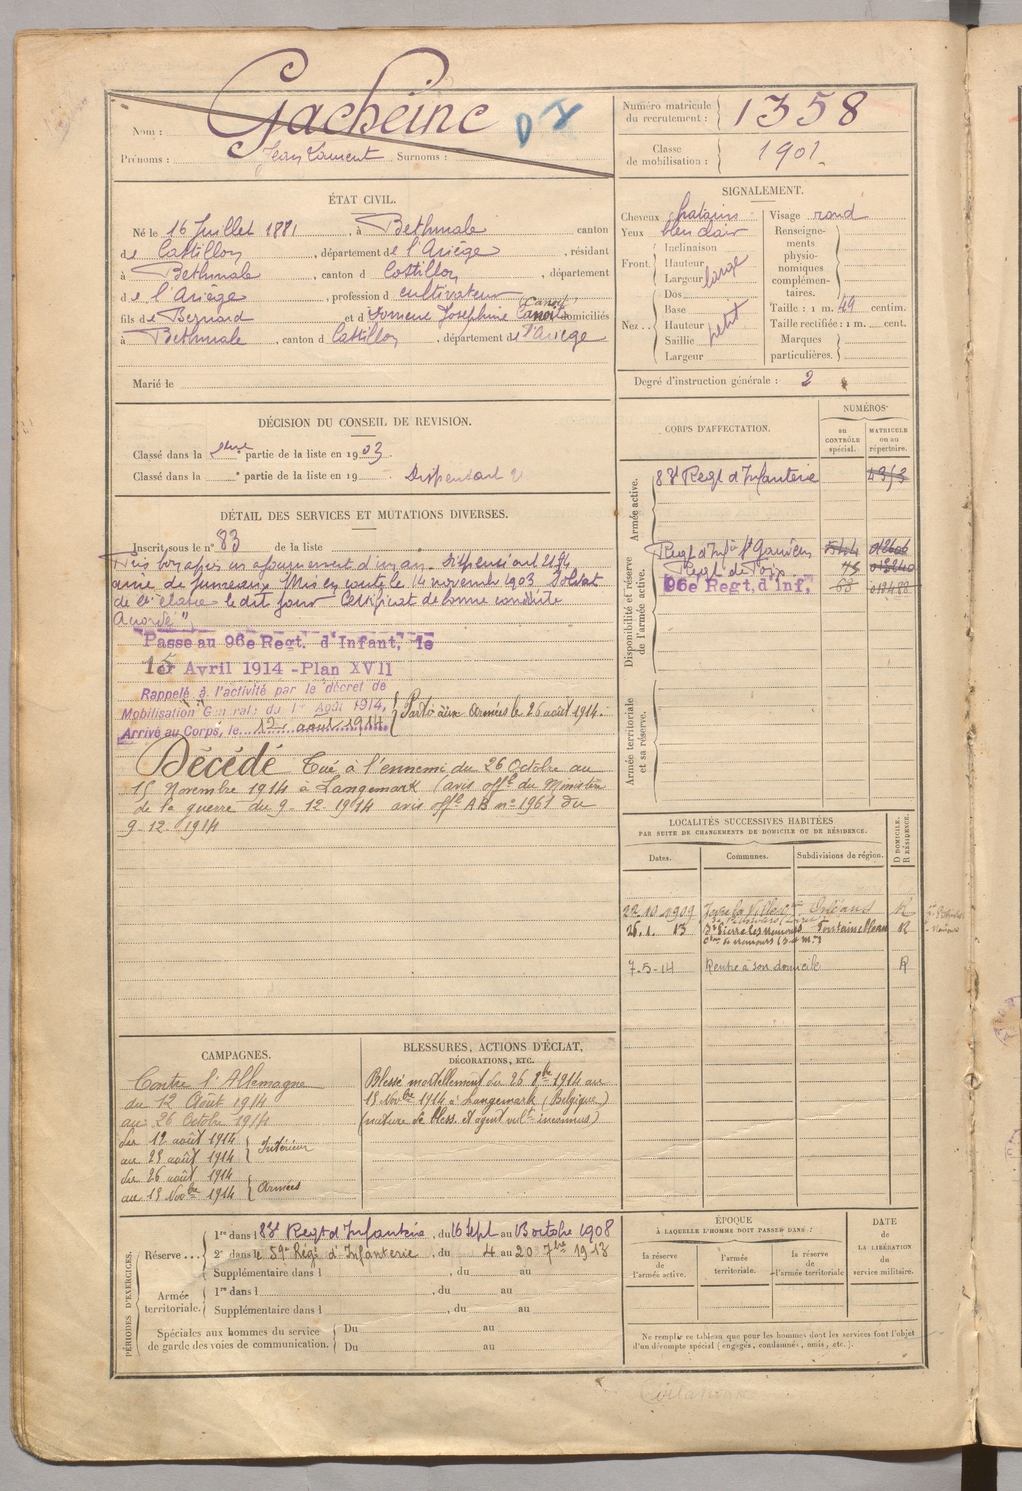 Nom : Gacheinc D I
Prénoms : Jean Laurent Surnoms :
Numéro matricule du recrutement : 1358
Classe de mobilisation : 1901.
ÉTAT CIVIL.
Né le 16 Juillet 1881, à Bethmale canton
de Castillon, département de l'Ariège, résidant
à Bethmale, canton d Castillon, département
de l'Ariège, profession d cultivateur
fils de Bernard et d Domenc Josephine Canoit domiciliés
à Bethmale, canton d Castillon, département de l'Ariège
Marié le
SIGNALEMENT.
Cheveux chatains
Yeux bleu clair
Front Inclinaison
Hauteur
Largeur large
Nez Dos
Base
Hauteur petit
Saillie
Largeur
Visage rond
Renseignements physionomiques complémentaires.
Taille : 1 m. 49 centim.
Taille rectifiée : 1 m. cent.
Marques particulières.
Degré d'instruction générale : 2
DÉCISION DU CONSEIL DE REVISION.
Classé dans la partie de la liste en 1903.
Classé dans la ° partie de la liste en 19 Dispensant 21
DÉTAIL DES SERVICES ET MUTATIONS DIVERSES.
Inscrit sous le n° 83 de la liste
après un ajournement d'un an. Dispensé art
Mis en route le 14 novembre 1903 Soldat
de 2e classe le dit jour Certificat de bonne conduite
Accordé"
Passe au 96e Regt. d'Infant, le
15 er Avril 1914 - Plan XVII
Rappelé à l'activité par le décret de
Mobilisation Générale du 1er Août 1914,
Arrivé au Corps, le 12 août 1914
Parti aux Armées le 26 août 1914.
Décédé Tué à l'ennemi du 26 Octobre au
15 Novembre 1914 à Langemark (avis offel du Ministère
de la guerre du 9-12-1914 avis offel AB n° 1961 du
9-12-1914
CORPS D'AFFECTATION.
NUMÉROS
au CONTRÔLE spécial.
MATRICULE ou au répertoire.
Armée active.
83e Regt d'Infanterie
Disponibilité et réserve de l'armée active.
Regt d'Infie St Gaudens
Regt de Foix
96e Regt, d'Inf,
Armée territoriale et sa réserve.
LOCALITÉS SUCCESSIVES HABITÉES
PAR SUITE DE CHANGEMENTS DE DOMICILE OU DE RÉSIDENCE.
Dates. Communes. Subdivisions de région. D DOMICILE. R RÉSIDENCE.
22.10.1909 Orléans R
25.1.13 St Pierre les Nemours Fontainebleau R
7-5-14 Rentre à son domicile R
CAMPAGNES.
Contre l'Allemagne
du 12 Août 1914
au 26 Octobre 1914
du 12 août 1914
au 25 août 1914 Intérieur
du 26 août 1914
au 15 Novbre 1914 Armées
BLESSURES, ACTIONS D'ÉCLAT,
DÉCORATIONS, ETC.
Blessé mortellement du 26 8bre 1914 au
15 Novbre 1914 à Langemark (Belgique)
(nature de bless. et agent vult inconnus)
PÉRIODES D'EXERCICES.
Réserve... 1re dans l 83e Regt d'Infanterie, du 16 Sept au 13 octobre 1908
2e dans le 59e Régt d'Infanterie, du 4 au 20 7bre 1913
Supplémentaire dans l , du au
Armée territoriale. 1re dans l , du au
Supplémentaire dans l , du au
Spéciales aux hommes du service de garde des voies de communication. Du au
Du au
ÉPOQUE
À LAQUELLE L'HOMME DOIT PASSER DANS :
la réserve de l'armée active.
l'armée territoriale.
la réserve de l'armée territoriale
DATE DE LA LIBÉRATION du service militaire.
Ne remplir ce tableau que pour les hommes dont les services font l'objet
d'un décompte spécial (engagés, condamnés, omis, etc.).